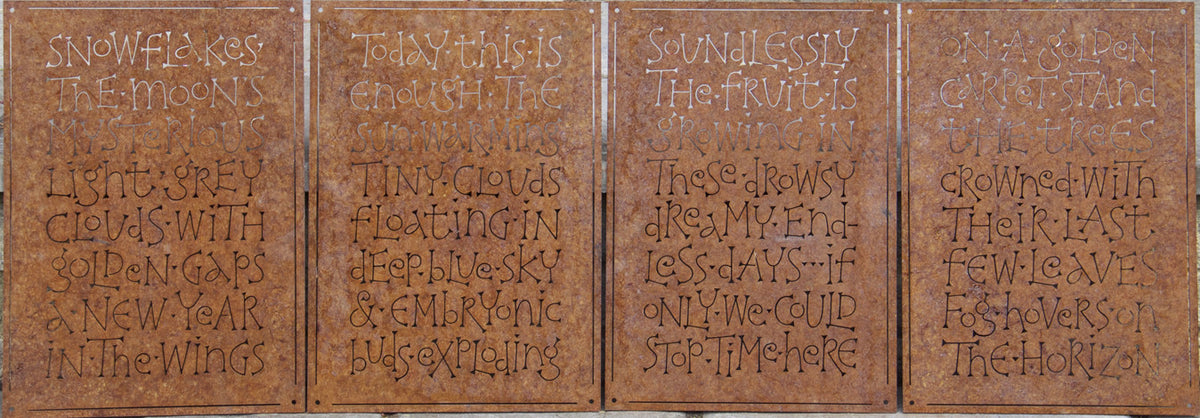 SNOWFLAKES·
THE·MOON'S
MYSTERIOUS
LIGHT·GREY
CLOUDS·WITH
GOLDEN·GAPS
A·NEW·YEAR
IN·THE·WINGS
Today·this·is
ENOUGH:THE
SUN WARMING
TINY·CLOUDS
FLOATING·IN
dEEp·blue·SKY
& EMBRYONIC
buds·exploding
SOUNDLESSLY
THE·FRUIT·IS
GROWING·IN
These·drowsy
dREAMY·END-
LESS·dAYS···if
ONLY·WE·COULD
STOP·TIME·HERE
ON·A·GOLDEN
CARPET·STAND
THE·TREES
CROWNED·WITH
THEIR·LAST
FEW·LEAVES
FOG·HOVERS·ON
THE·HORIZON